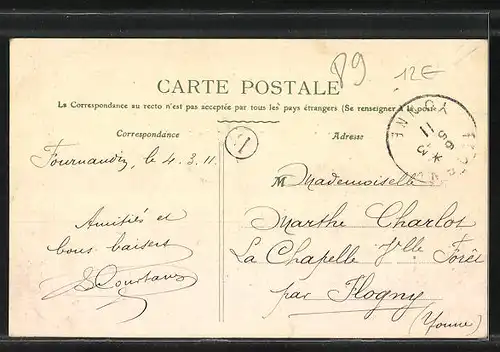 89
12E
CARTE POSTALE
La Correspondance au recto n'est pas acceptée par tous les pays étrangers (Se renseigner à la poste
Correspondance
Adresse
Fournaudin, le 4.3.11.
M Mademoiselle
Marthe Charlot
La Chapelle Vlle Forêt
par Flogny
(Yonne)
Amitiés et
bons baisers
YONNE